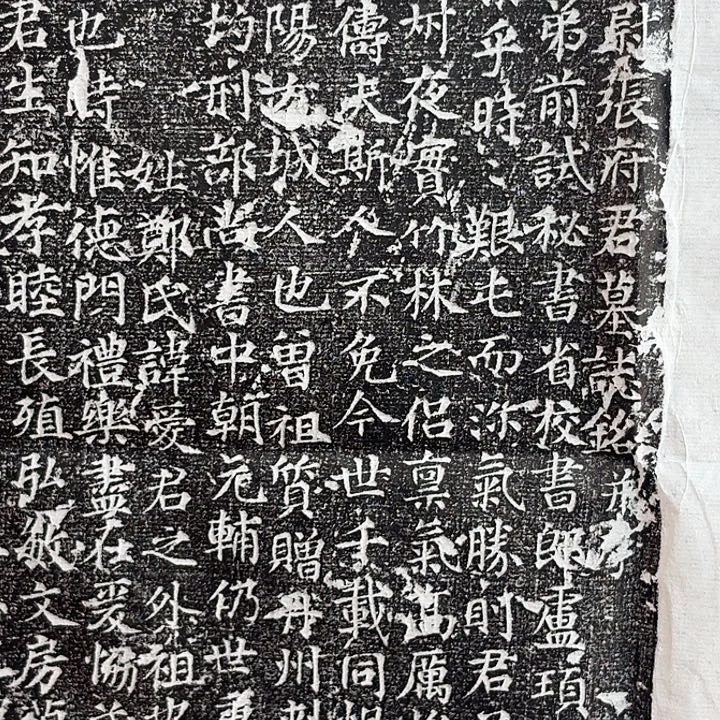 尉張府君墓誌銘并序
弟前試秘書省校書郎盧頊
乎時艱屯而沵氣勝則君
州夜實竹林之侶稟氣高厲
儔夫斯人不免今世手載同
陽方城人也曾祖質贈丹州刺
均刑部尚書中朝元輔仍世
姓鄭氏諱爰君之外祖
也時惟德門禮樂盡在爰恊
君生知孝睦長殖弘敏文房